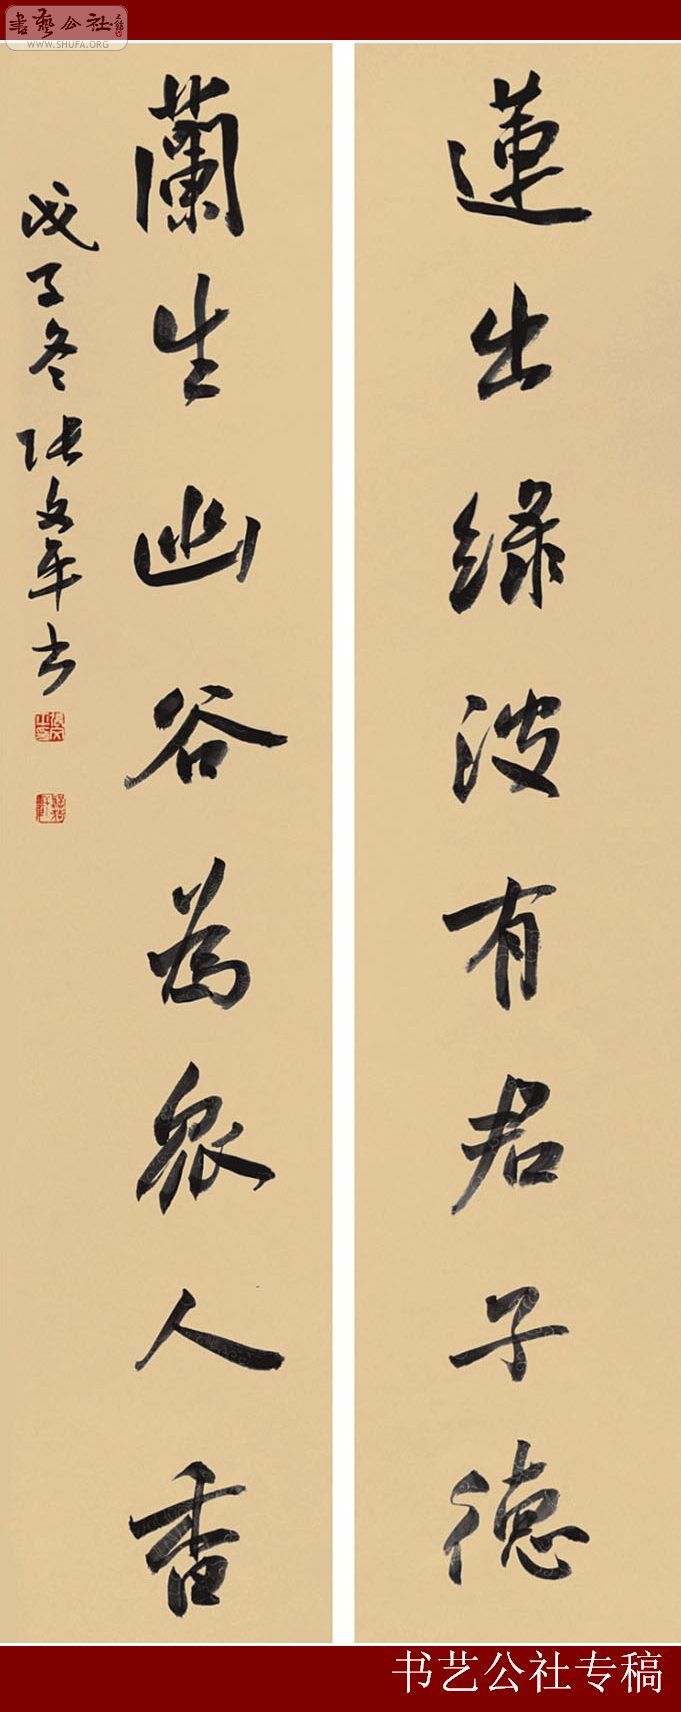 書藝公社
WWW.SHUFA.ORG
蓮出綠波有君子德
蘭生幽谷為眾人香
戊子冬張文平書
书艺公社专稿